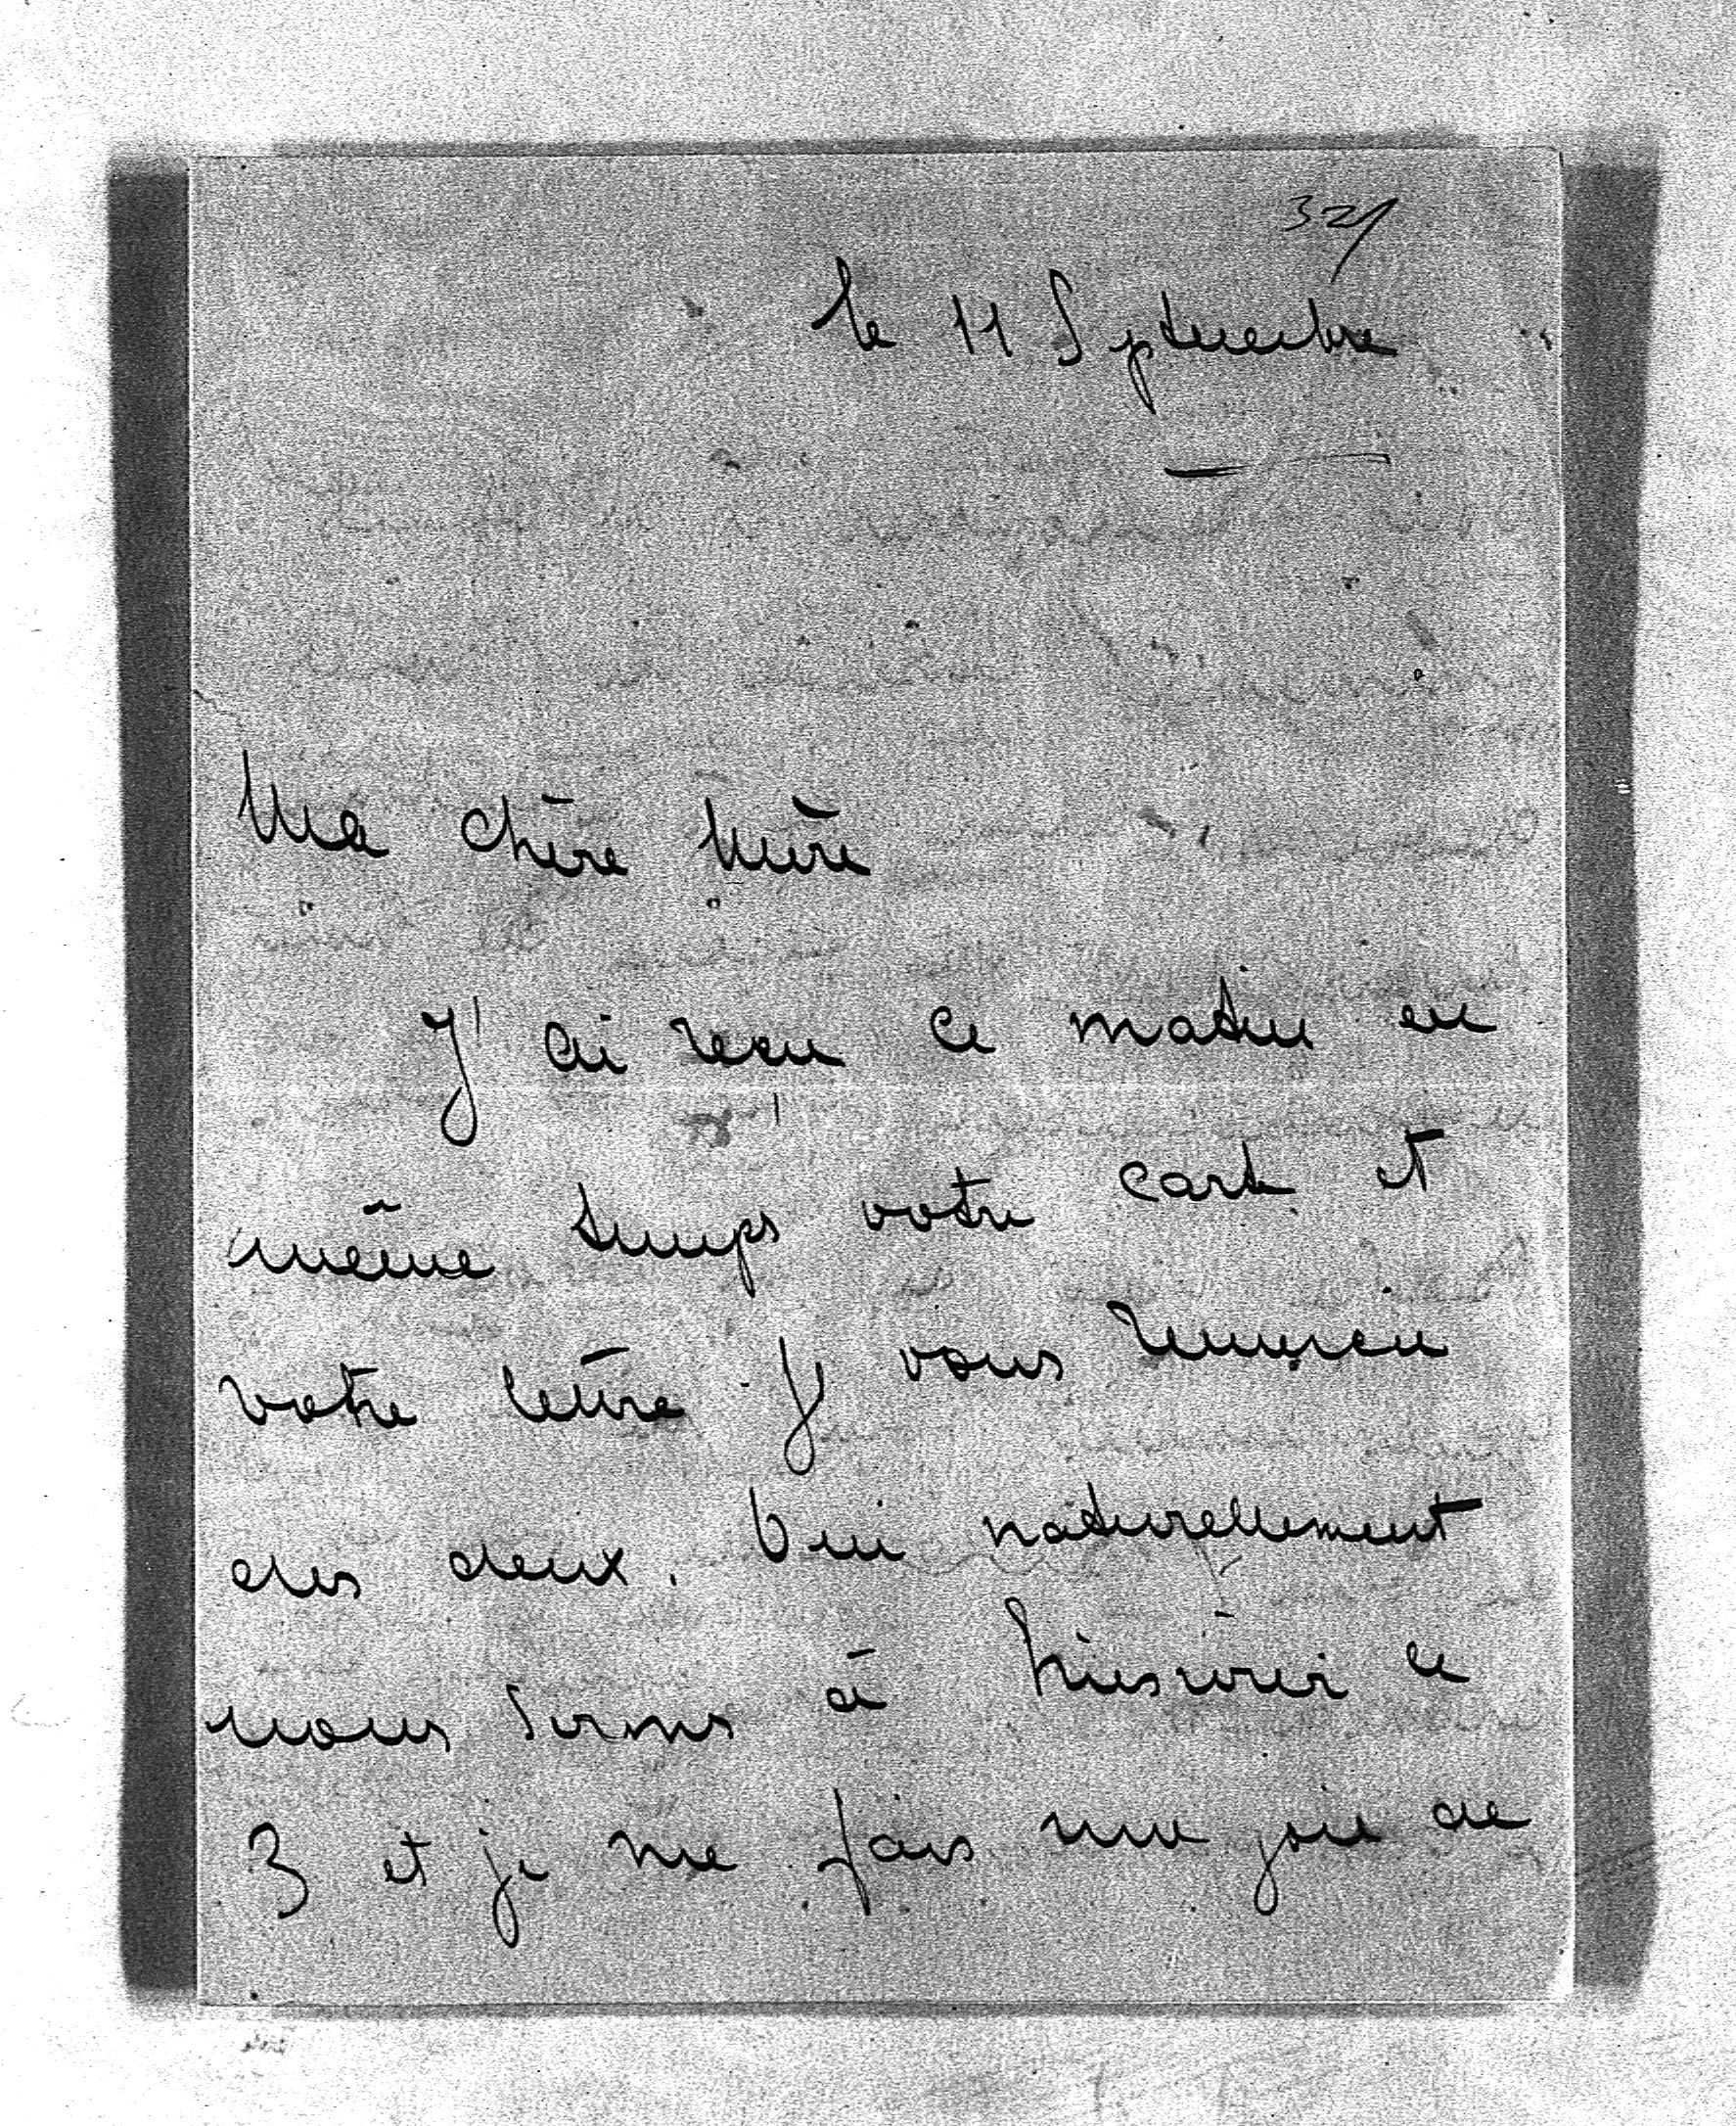 321
le 11 Septembre
Ma chère Mère
J'ai recu ce matin en
même temps votre carte et
votre lettre Je vous remercie
des deux. Oui naturellement
nous serons à le
3 et je me fais une joie de